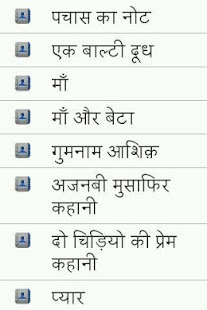 पचास का नोट
एक बाल्टी दूध
माँ
माँ और बेटा
गुमनाम आशिक़
अजनबी मुसाफिर
कहानी
दो चिड़ियो की प्रेम
कहानी
प्यार